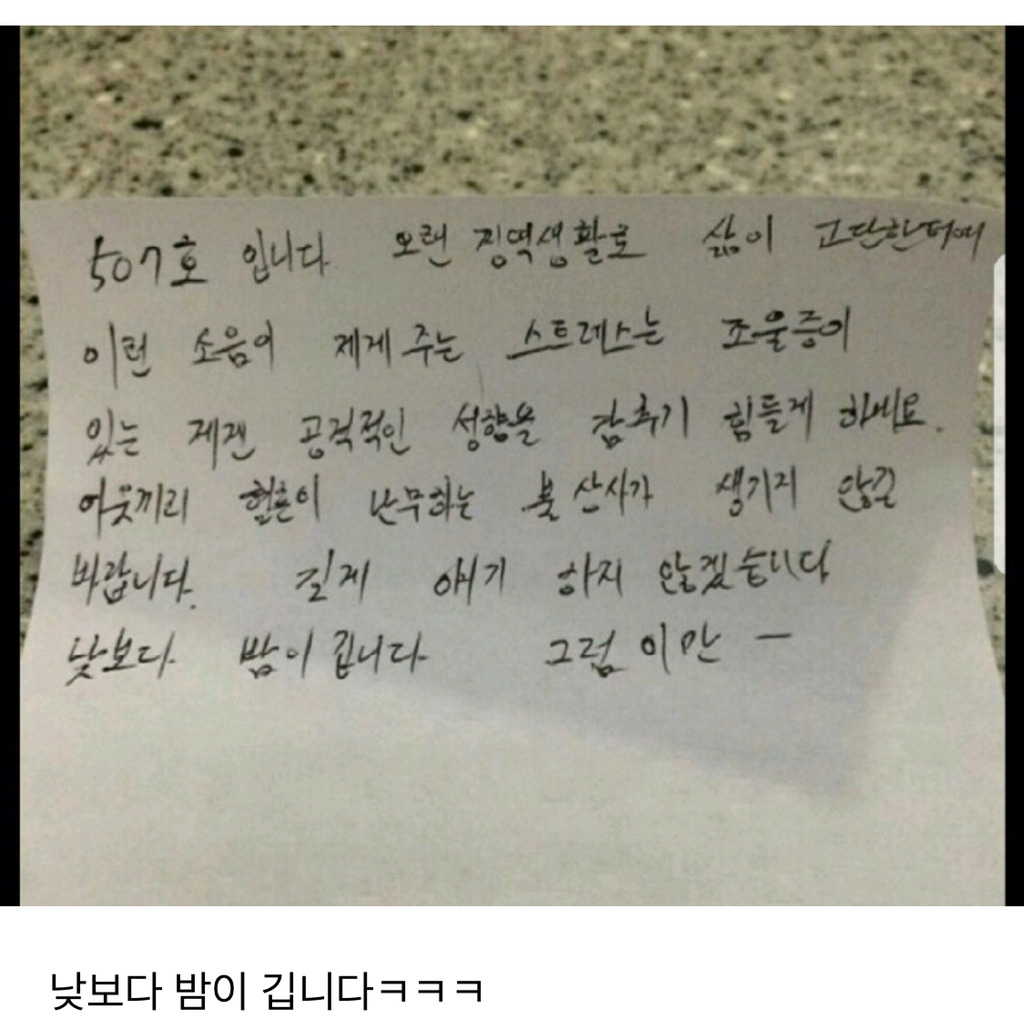 507호 입니다 오랜 징역생활로 삶이 고단한터에
이런 소음이 제게 주는 스트레스는 조울증이
있는 제겐 공격적인 성향을 감추기 힘들게 하네요.
이웃끼리 혈흔이 난무하는 불상사가 생기지 않길
바랍니다. 길게 얘기 하지 않겠습니다
낮보다 밤이 깁니다 그럼 이만 ㅡ
낮보다 밤이 깁니다ㅋㅋㅋ